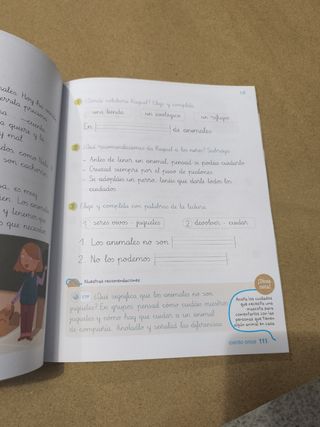 ¿Dónde colabora Raquel? Elige y completa.
una tienda un zoológico un refugio
En de animales
¿Qué recomendaciones da Raquel a los niños? Subraya.
- Antes de tener un animal, pensad si podéis cuidarlo.
- Cruzad siempre por el paso de peatones.
- Si adoptáis un perro, tenéis que darle todos los
cuidados.
3 Elige y completa con palabras de la lectura.
1 seres vivos - juguetes 2 devolver - cuidar
1. Los animales no son
2. No los podemos
Nuestras recomendaciones
¿Qué significa que los animales no son
juguetes? En grupos, pensad cómo cuidáis vuestros
juguetes y cómo hay que cuidar a un animal
de compañía. Anotadlo y señalad las diferencias.
¡Toma
nota!
Anota los cuidados
que necesita una
mascota para
comentarlos con las
personas que tienen
algún animal en casa.
ciento once 111